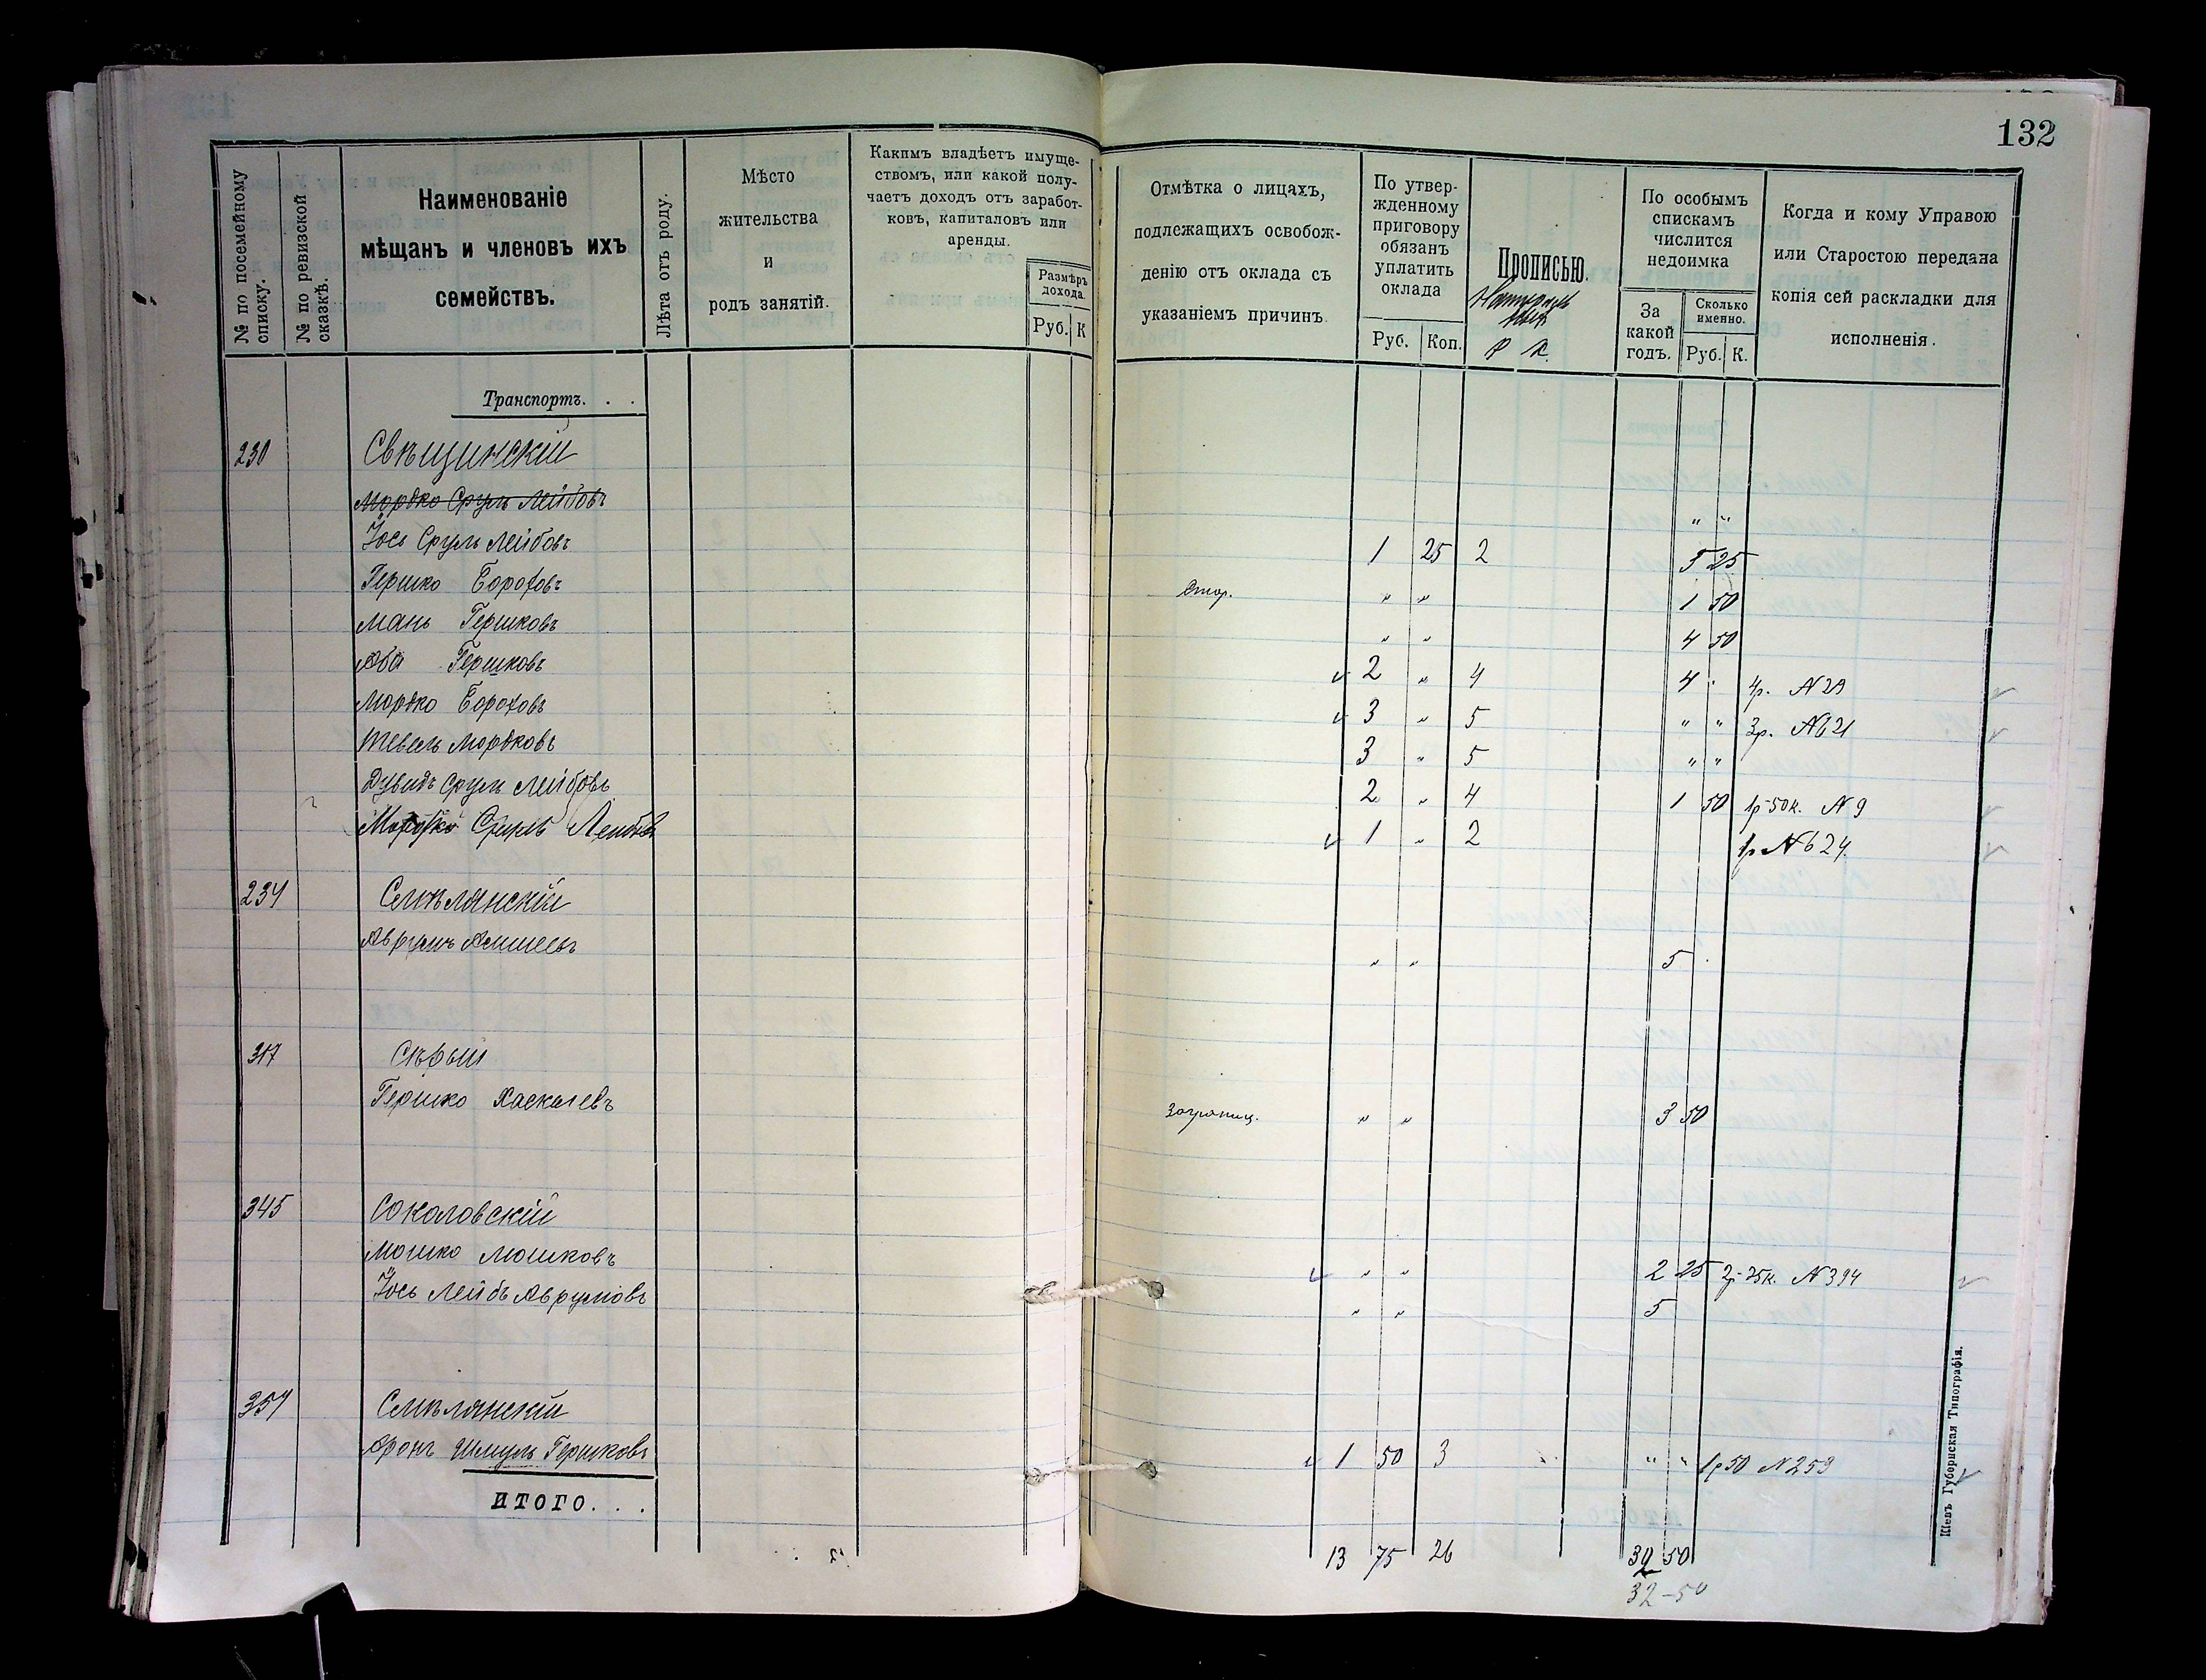 132
№ по посемейному списку.
№ по ревизской сказкѣ.
Наименованіе
мѣщанъ и членовъ ихъ
семействъ.
Лѣта отъ роду.
Мѣсто
жительства
и
родъ занятій.
Какимъ владѣетъ имуще-
ствомъ, или какой полу-
чаетъ доходъ отъ заработ-
ковъ, капиталовъ или
аренды.
Размѣръ
дохода.
Руб. К
Отмѣтка о лицахъ,
подлежащихъ освобож-
денію отъ оклада съ
указаніемъ причинъ.
По утвер-
жденному
приговору
обязанъ
уплатить
оклада
Руб. Коп.
Прописью.
Р К.
По особымъ
спискамъ
числится
недоимка
За
какой
годъ.
Сколько
именно.
Руб. К.
Когда и кому Управою
или Старостою передана
копія сей раскладки для
исполненія.
Транспортъ. . .
230 Свѣщинскій
Мордко Сруль Лейбовъ " "
Іось Сруль Лейбовъ 1 25 2 5 25
Гершко Бороховъ " " 1 50
Мань Гершковъ " " 4 50
Аба Гершковъ ✓ 2 " 4 4 4р. N 29 ✓
Мордко Бороховъ ✓ 3 " 5 " " 3р. N 621 ✓
Тевель Мордковъ 3 " 5 " "
Дувидъ Сруль Лейбовъ 2 " 4 1 50 1р 50к. N 9 ✓
Мордко Сруль Лейбовъ ✓ 1 " 2 1р N 624. ✓
234 Смѣлянскій
Аврумъ " " 5
317 Сѣрый
Гершко Хаскелевъ Заграниц. " " 3 50
345 Соколовскій
Мошко Мошковъ ✓ " " 2 25 2р 25к. N 394 ✓
Іось Лейбъ Аврумовъ " " 5
354 Смѣлянскій
Аронъ Шмуль Гершковъ ✓ 1 50 3 " " 1р 50 N 259 ✓
ИТОГО. . .
13 75 26 32 50
32-50
Кіевъ Губернская Типографія.